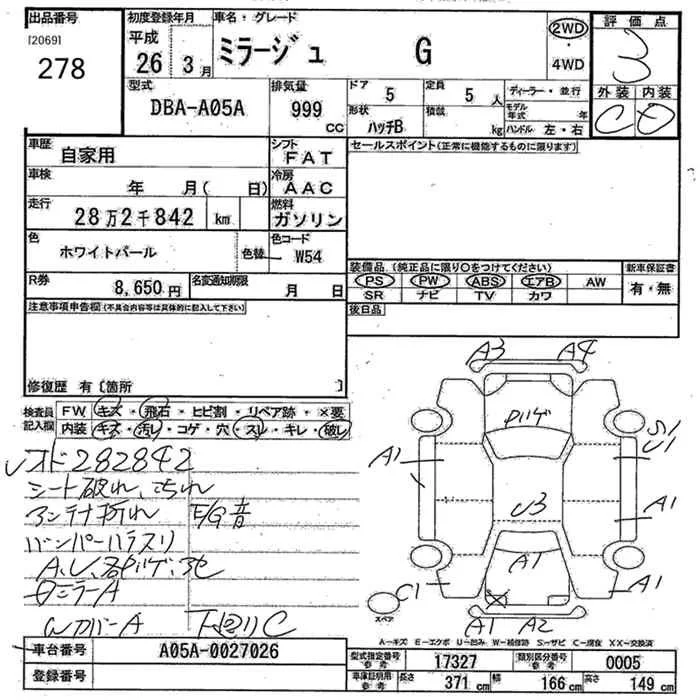 出品番号
[2069]
278
初度登録年月
平成
26 3月
車名・グレード
ミラージュ G
2WD
・
4WD
評価点
3
外装 内装
C D
型式
DBA-A05A
排気量
999
CC
ドア
5
定員
5 人
形状
ハッチB
積載
kg
ディーラー・並行
モデル年式 年
ハンドル 左・右
車歴
自家用
シフト
FAT
車検
年 月( 日)
冷房
AAC
走行
28万2千842 km
燃料
ガソリン
色
ホワイトパール
色替
色コード
W54
R券
8,650円
名変通知期限
月 日
セールスポイント(正常に機能するものに限ります)
装備品 (純正品に限り○をつけてください)
PS PW ABS エアB AW
SR ナビ TV カワ
新車保証書
有・無
後日品
注意事項申告欄(不具合内容等は具体的に記入して下さい)
修復歴 有〔箇所 〕
検査員記入欄
FW キズ・飛石・ヒビ割・リペア跡・×要
内装 キズ・汚レ・コゲ・穴・スレ・キレ・破レ
オド282842
シート破れ、汚れ
アンテナ折れ E/G音
バンパーハラスリ
A.U.
ミラーA
WカバーA 下回りC
A3 A4
S1
U1
A1
U3
A1
A1
C1
A1
A1 A2
スペア
A－キズ E－エクボ U－凹み W－補修跡 S－サビ C－腐食 XX－交換済
車台番号
A05A-0027026
登録番号
型式指定番号 参考
17327
類別区分番号 参考
0005
車庫証明用 参考
長さ 371 cm 幅 166 cm 高さ 149 cm